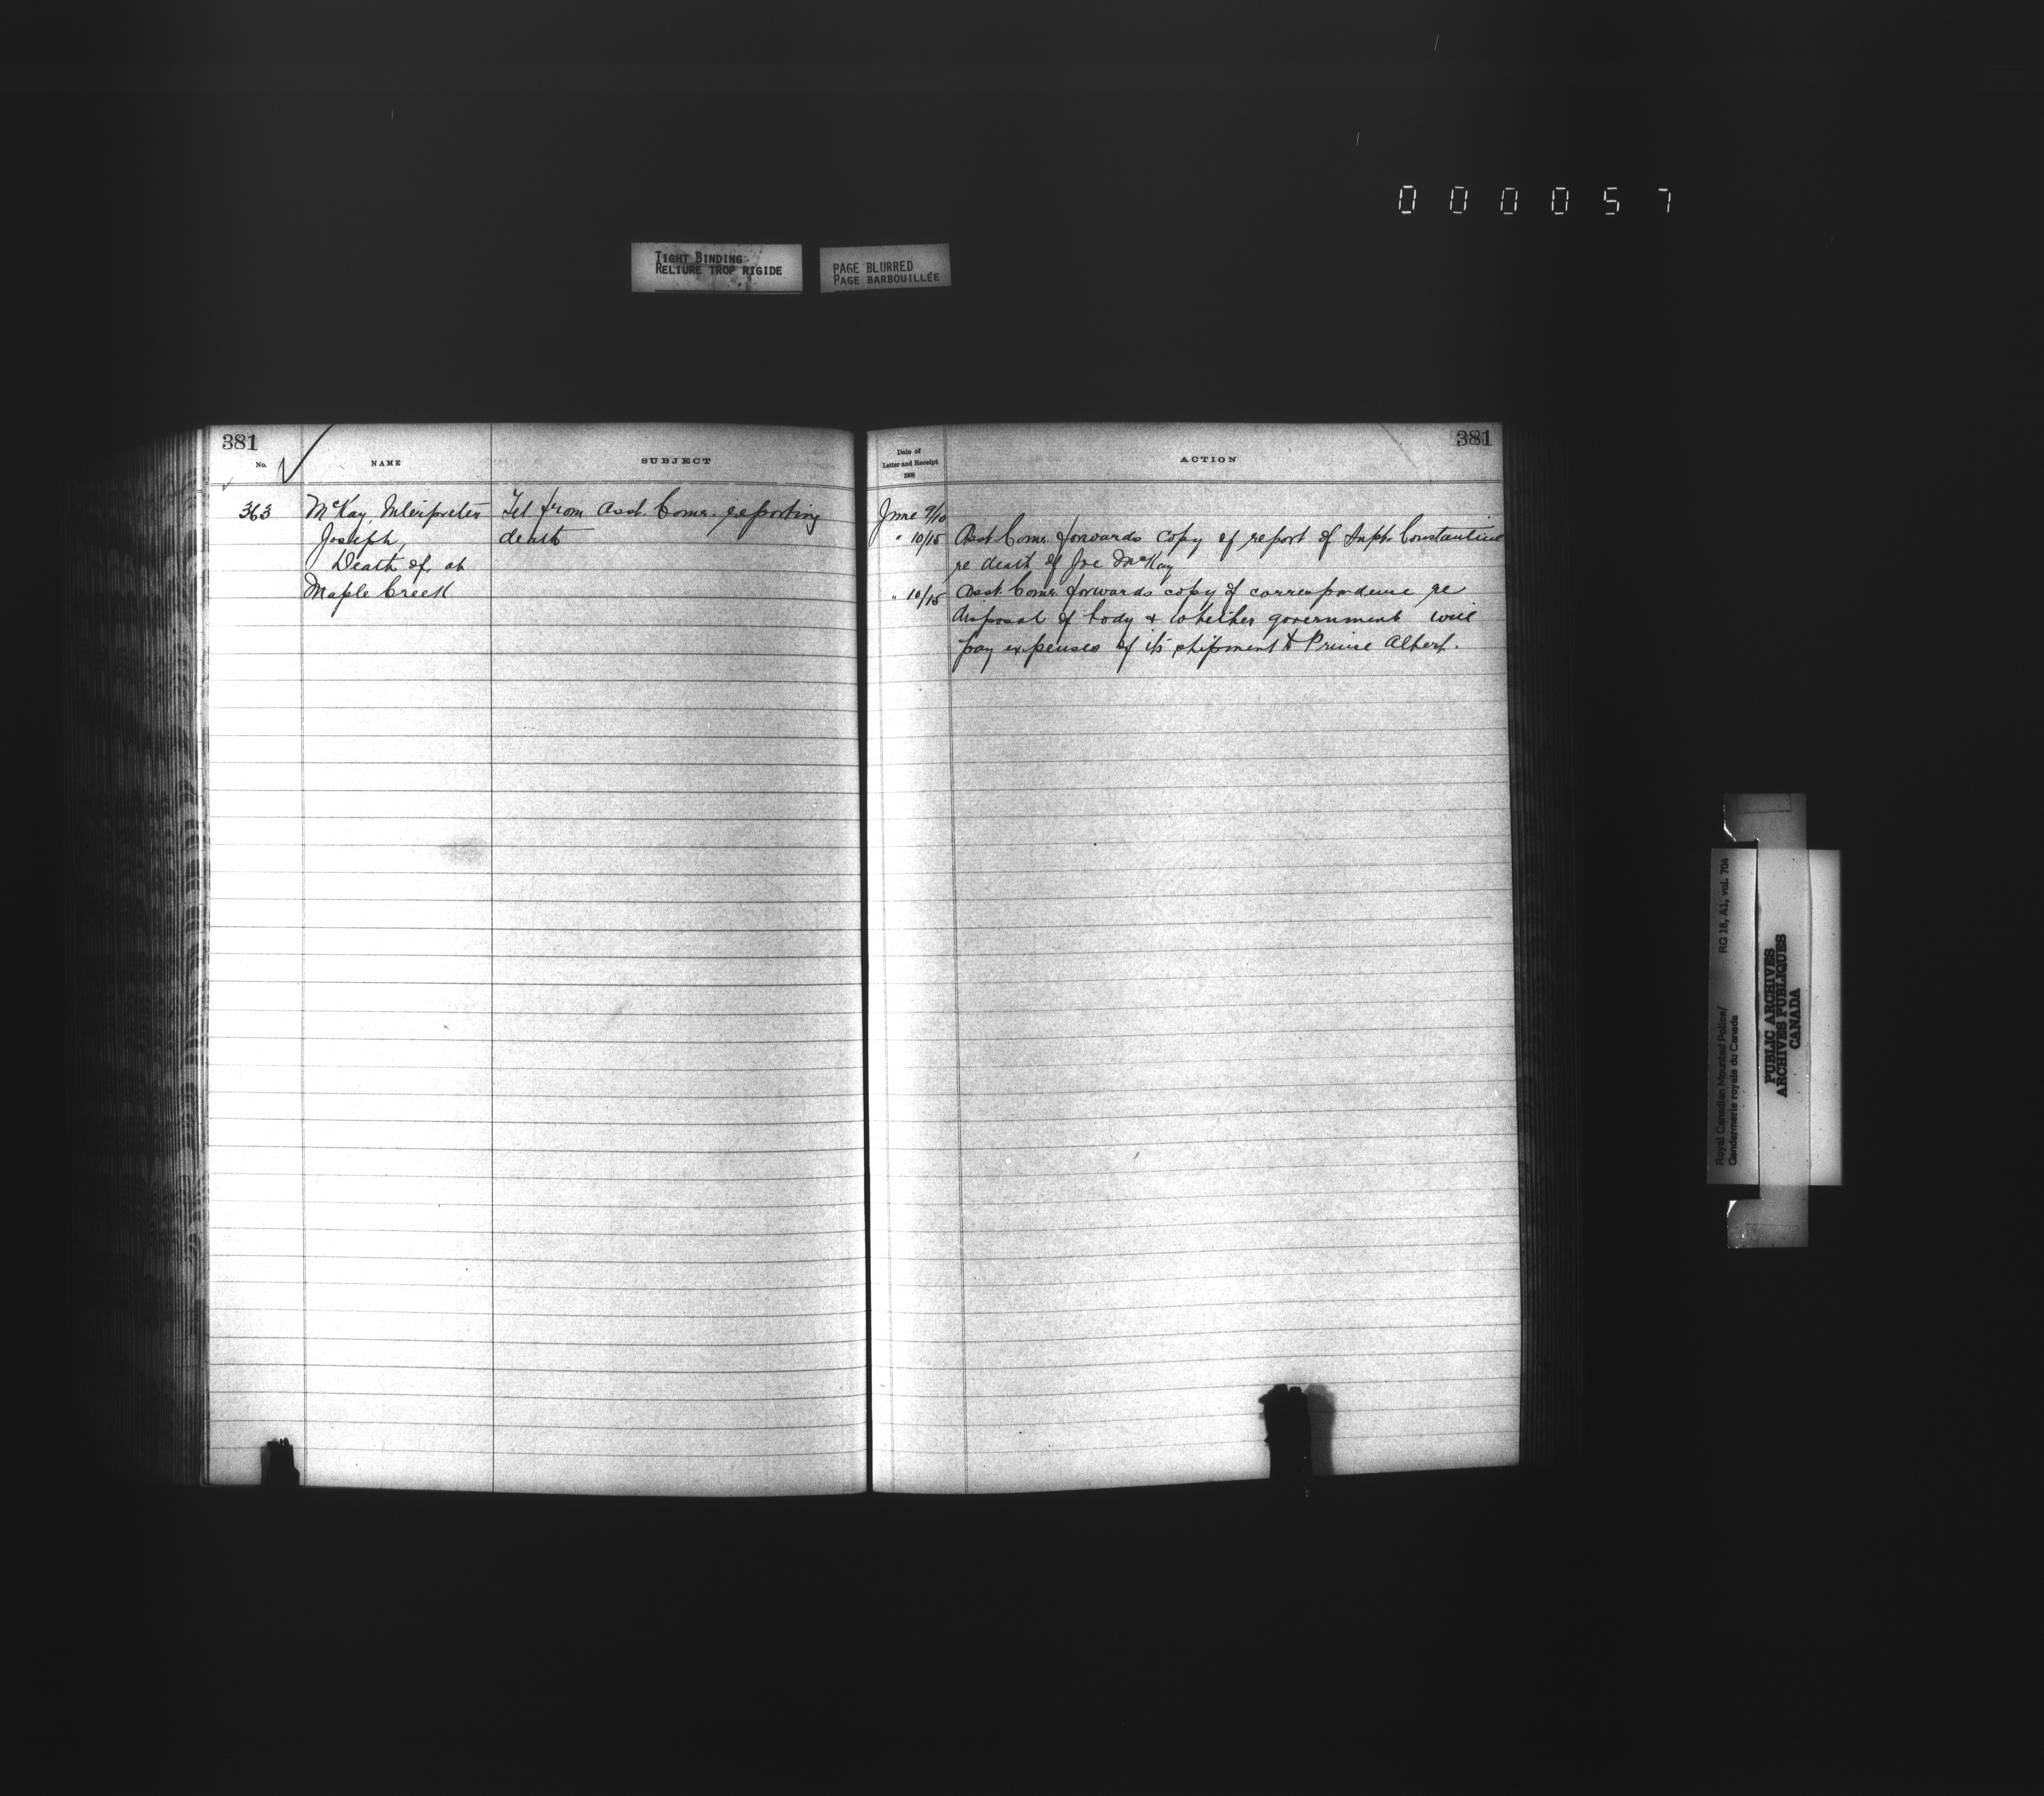 000057
TIGHT BINDING
RELIURE TROP RIGIDE
PAGE BLURRED
PAGE BARBOUILLÉE
381
No.
NAME
SUBJECT
363
McKay, Interpreter
Joseph,
Death of, at
Maple Creek
Tel from Asst. Comr. reporting
death
381
Date of
Letter and Receipt
ACTION
June 9/10
" 10/15 Asst Comr. forwards copy of report of Supt. Constantine
re death of Joe McKay
" 10/15 Asst. Comr. forwards copy of correspondence re
disposal of body & whether government will
pay expenses of its shipment to Prince Albert.
Royal Canadian Mounted Police/
Gendarmerie royale du Canada
RG 18, A1, vol. 704
PUBLIC ARCHIVES
ARCHIVES PUBLIQUES
CANADA